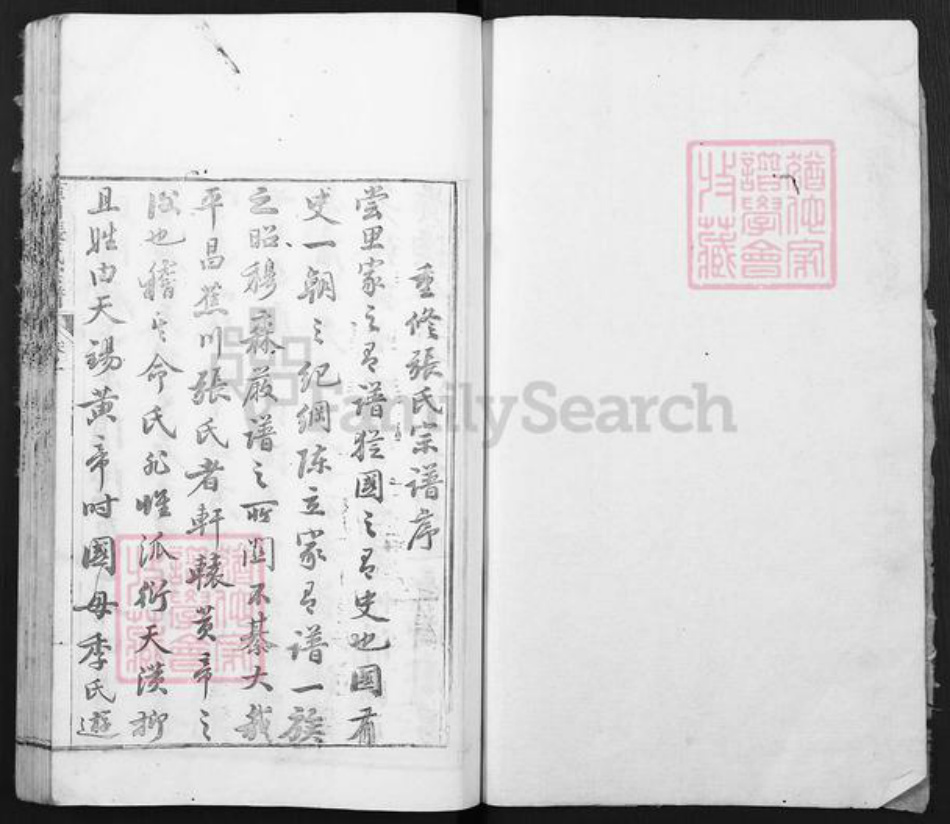 猶他家
譜學會
收藏
重修張氏宗譜序
嘗思家之有譜猶國之有史也國有
史一朝之紀綱陈立家有譜一族
之昭穆森嚴譜之所関不綦大哉
平昌蕉川張氏者軒轅黃帝之
後也稽其命氏非惟派衍天潢抑
且姓由天錫黃帝时國母季氏遊
猶他家
譜學會
收藏
FamilySearch